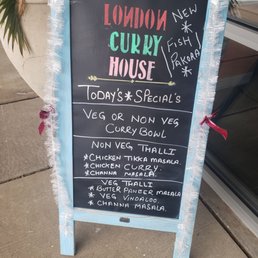 LONDON
CURRY
HOUSE
NEW
*
FISH
PAKORA
TODAY'S*SPECIAL'S
VEG OR NON VEG
CURRY BOWL
NON VEG THALLI
*CHICKEN TIKKA MASALA.
*CHICKEN CURRY.
*CHANNA MASALA.
VEG THALLI
*BUTTER PANEER MASALA
*VEG VINDALOO.
*CHANNA MASALA.